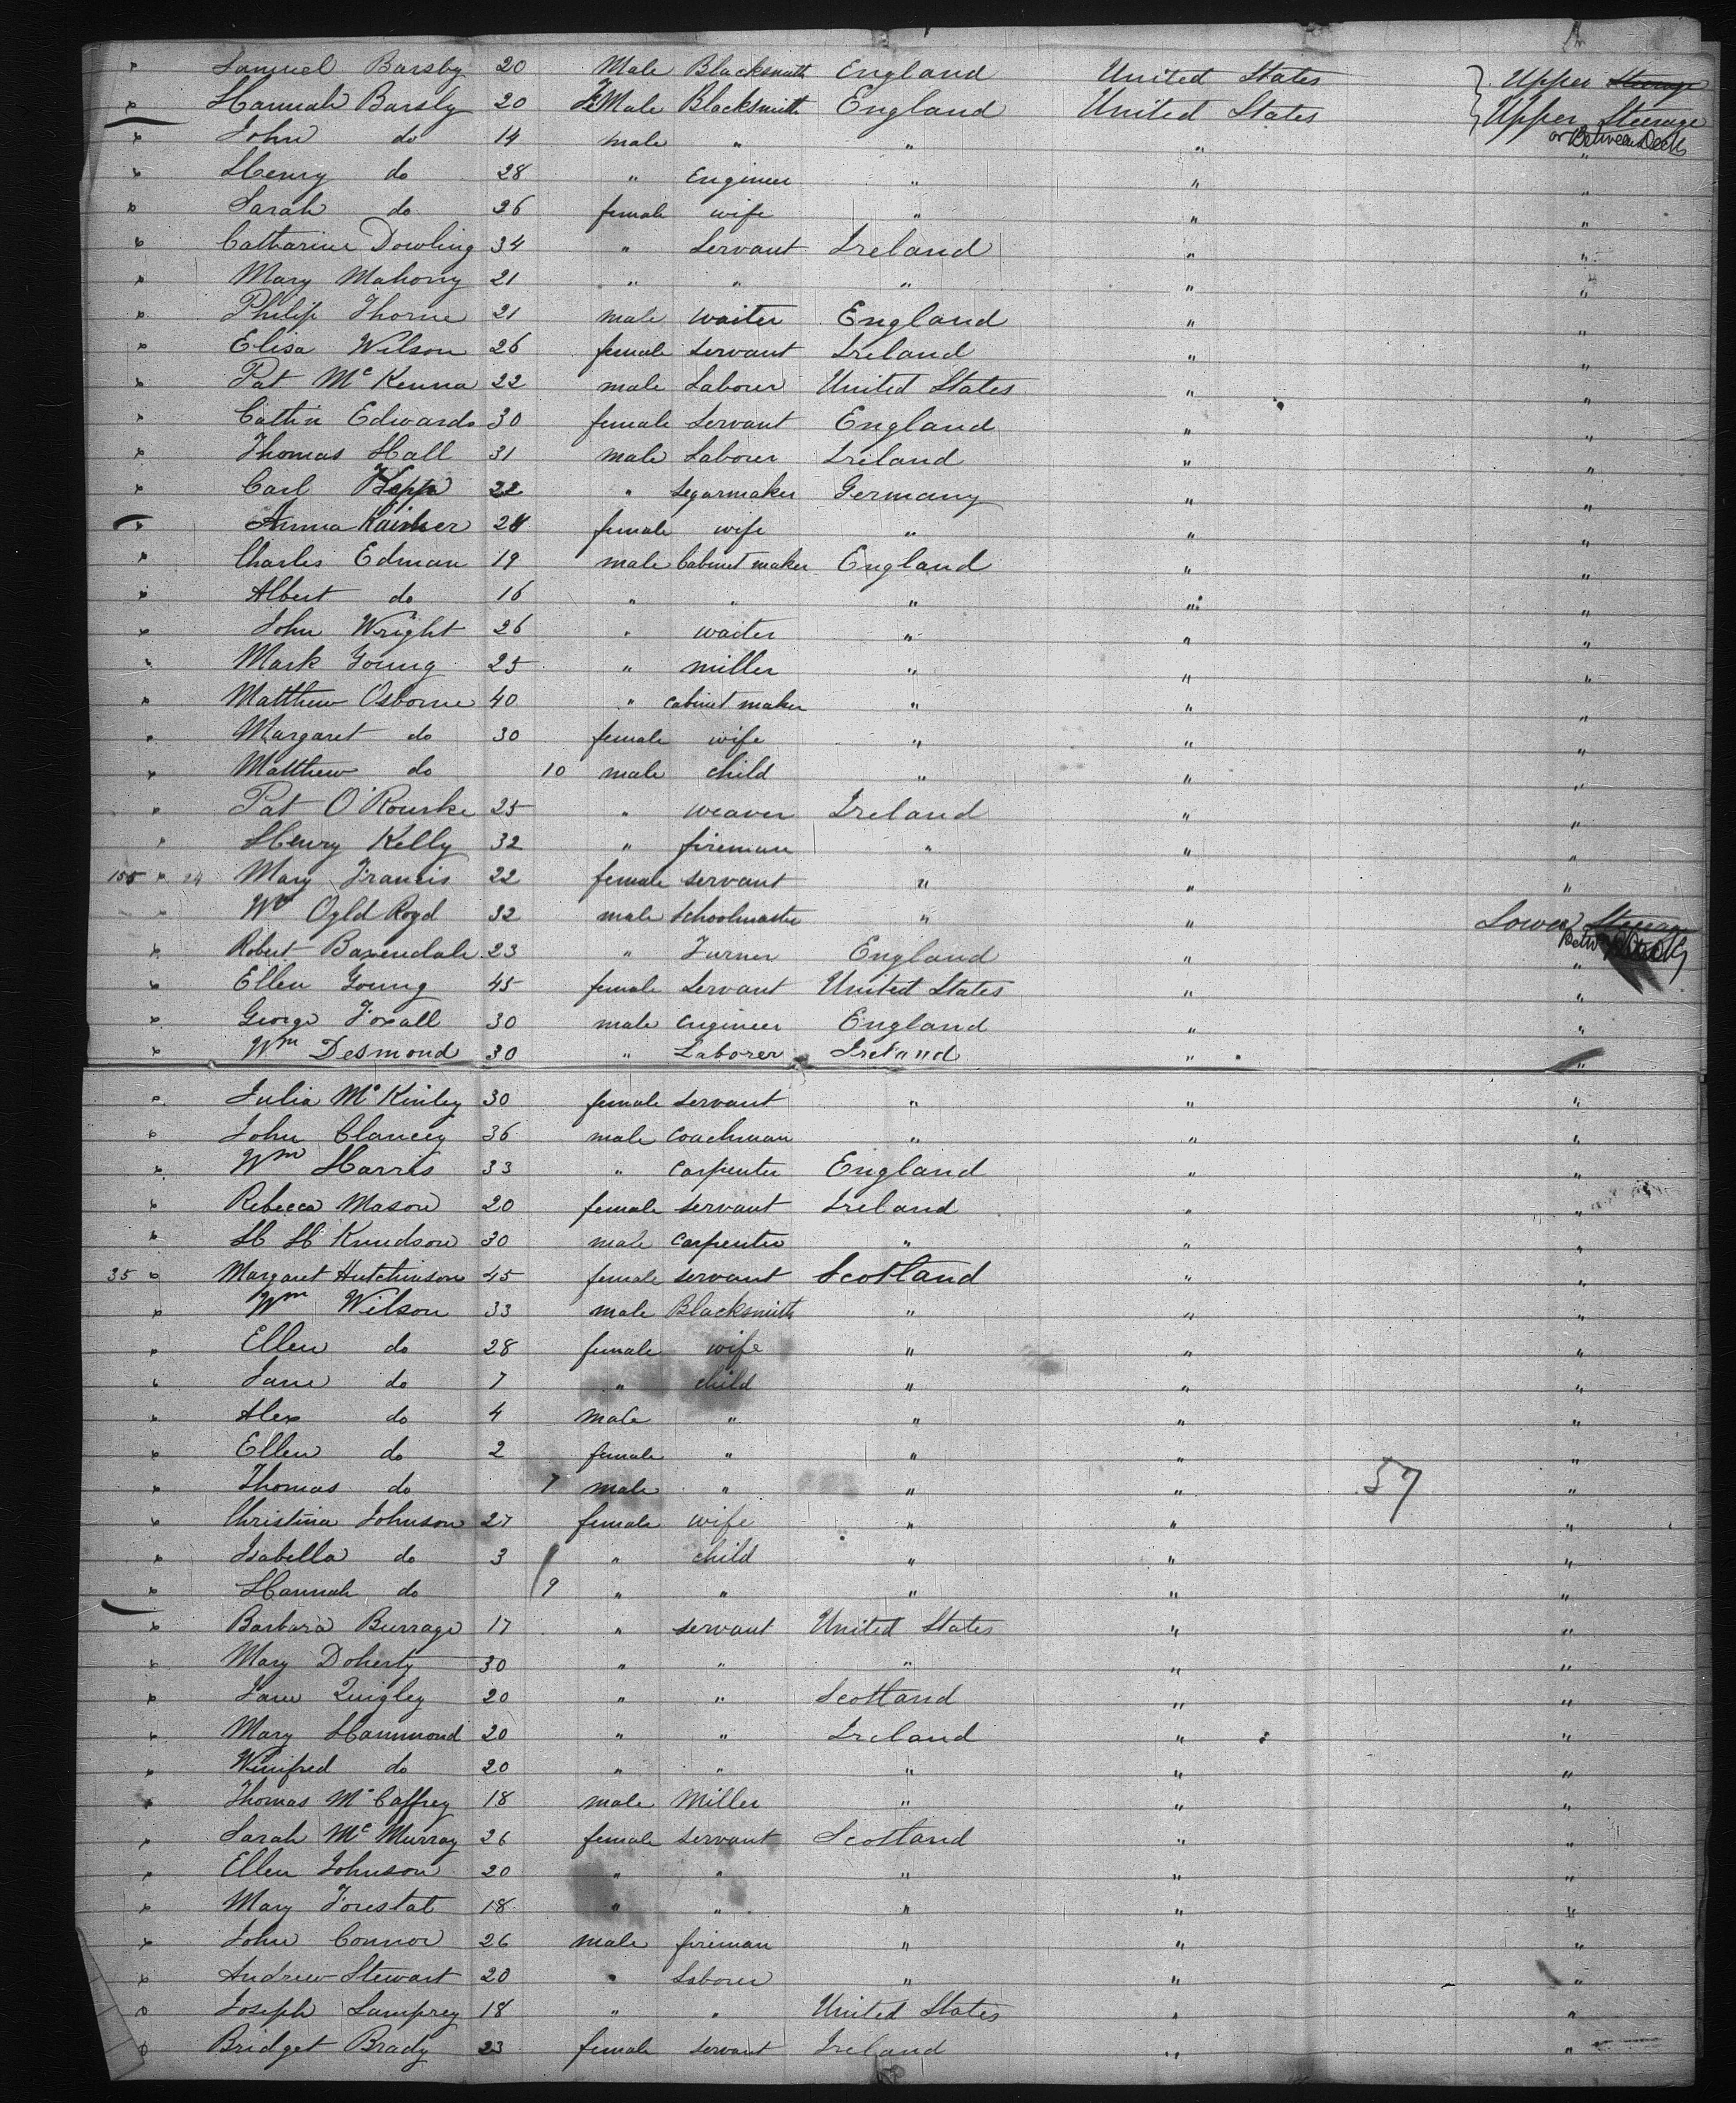 Samuel Barsby 20 Male Blacksmith England United States Upper Steerage
Hannah Barsby 20 FeMale Blacksmith England United States Upper Steerage
or Between Decks
John do 14 male " " " "
Henry do 28 " Engineer " " "
Sarah do 26 female wife " " "
Catharine Dowling 34 " Servant Ireland " "
Mary Mahony 21 " " " " "
Philip Thorne 21 male waiter England " "
Elisa Wilson 26 female servant Ireland " "
Pat McKenna 22 male Labourer United States " "
Cathn Edwards 30 female Servant England " "
Thomas Hall 31 male Labourer Ireland " "
Carl 22 " Segarmaker Germany " "
Anna 28 female wife " " "
Charles Edman 19 male Cabinet maker England " "
Albert do 16 " " " " "
John Wright 26 " waiter " " "
Mark Young 25 " miller " " "
Matthew Osborne 40 " cabinet maker " " "
Margaret do 30 female wife " " "
Matthew do 10 male child " " "
Pat O'Rourke 25 " weaver Ireland " "
Henry Kelly 32 " fireman " " "
155 24 Mary Francis 22 female servant " " "
Wm Ogld Royd 32 male Schoolmaster " " Lower Steerage
Robert Baxendale 23 " Turner England " "
Ellen Young 45 female Servant United States " "
George Foxall 30 male engineer England " "
Wm Desmond 30 " Laborer Ireland " "
Julia McKinley 30 female servant " " "
John Clancey 36 male coachman " " "
Wm Harris 33 " carpenter England " "
Rebecca Mason 20 female servant Ireland " "
H H Knudson 30 male carpenter " " "
35 Margaret Hutchinson 45 female servant Scotland " "
Wm Wilson 33 male Blacksmith " " "
Ellen do 28 female wife " " "
Jane do 7 " child " " "
Alex do 4 male " " " "
Ellen do 2 female " " " "
Thomas do 7 male " " " 57 "
Christina Johnson 27 female wife " " "
Isabella do 3 " child " " "
Hannah do 9 " " " " "
Barbara Burrage 17 " servant United States " "
Mary Doherty 30 " " " " "
Jane Quigley 20 " " Scotland " "
Mary Hammond 20 " " Ireland " "
Winifred do 20 " " " " "
Thomas McCaffrey 18 male Miller " " "
Sarah McMurray 26 female servant Scotland " "
Ellen Johnson 20 " " " " "
Mary Forestal 18 " " " " "
John Connor 26 male fireman " " "
Andrew Stewart 20 " Laborer " " "
Joseph Lamprey 18 " " United States " "
Bridget Brady 23 female servant Ireland " "